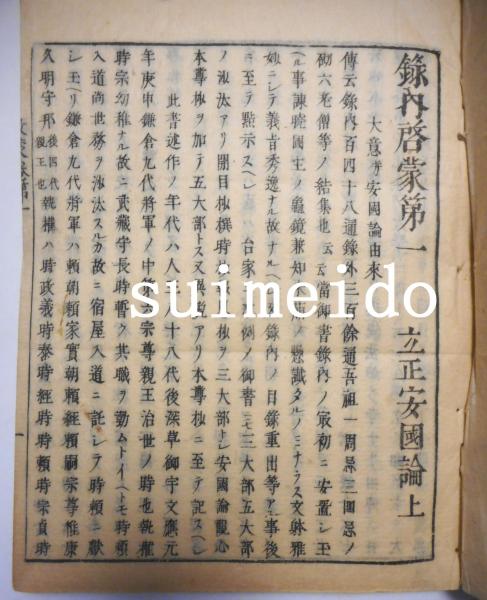 録内啓蒙第一　立正安國論上
大意并安國論由来
傳云録内百四十八通録外三百餘通吾祖一周忌三回忌ノ
砌六老僧等ノ結集也云云當御書録内ノ最初ニ安置シ玉
ヘル事諫暁國主ノ亀鏡兼知未萠ノ懸讖タルノミナラス文躰雅
妙ニシテ義旨秀逸ナル故ナルヘシ録内ノ目録重出等アル事後
ニ至テ點示スヘシ台家三大部ノ例ノ御書ニモ三大部五大部
ノ沙汰アリ開目抄撰時抄報恩抄ヲ三大部トシ安國論觀心
本尊抄ヲ加テ五大部トス又異説アリ本尊抄ニ至テ記スヘシ
此書述作ノ年代ハ人王八十八代後深草御宇文應元
年庚申鎌倉九代將軍ノ中第六宗尊親王治世ノ時也執權
時宗幼稚ナル故ニ武藏守長時暫ク其職ヲ勤ムトイヘトモ時頼
入道尚世務ヲ沙汰スルカ故ニ宿屋入道ニ託シテ時頼ニ獻
シ玉ヘリ鎌倉九代將軍ハ頼朝頼家實朝頼經頼嗣宗尊惟康
久明守邦後四代親王也執權ハ時政義時泰時經時時頼時宗貞時
suimeido